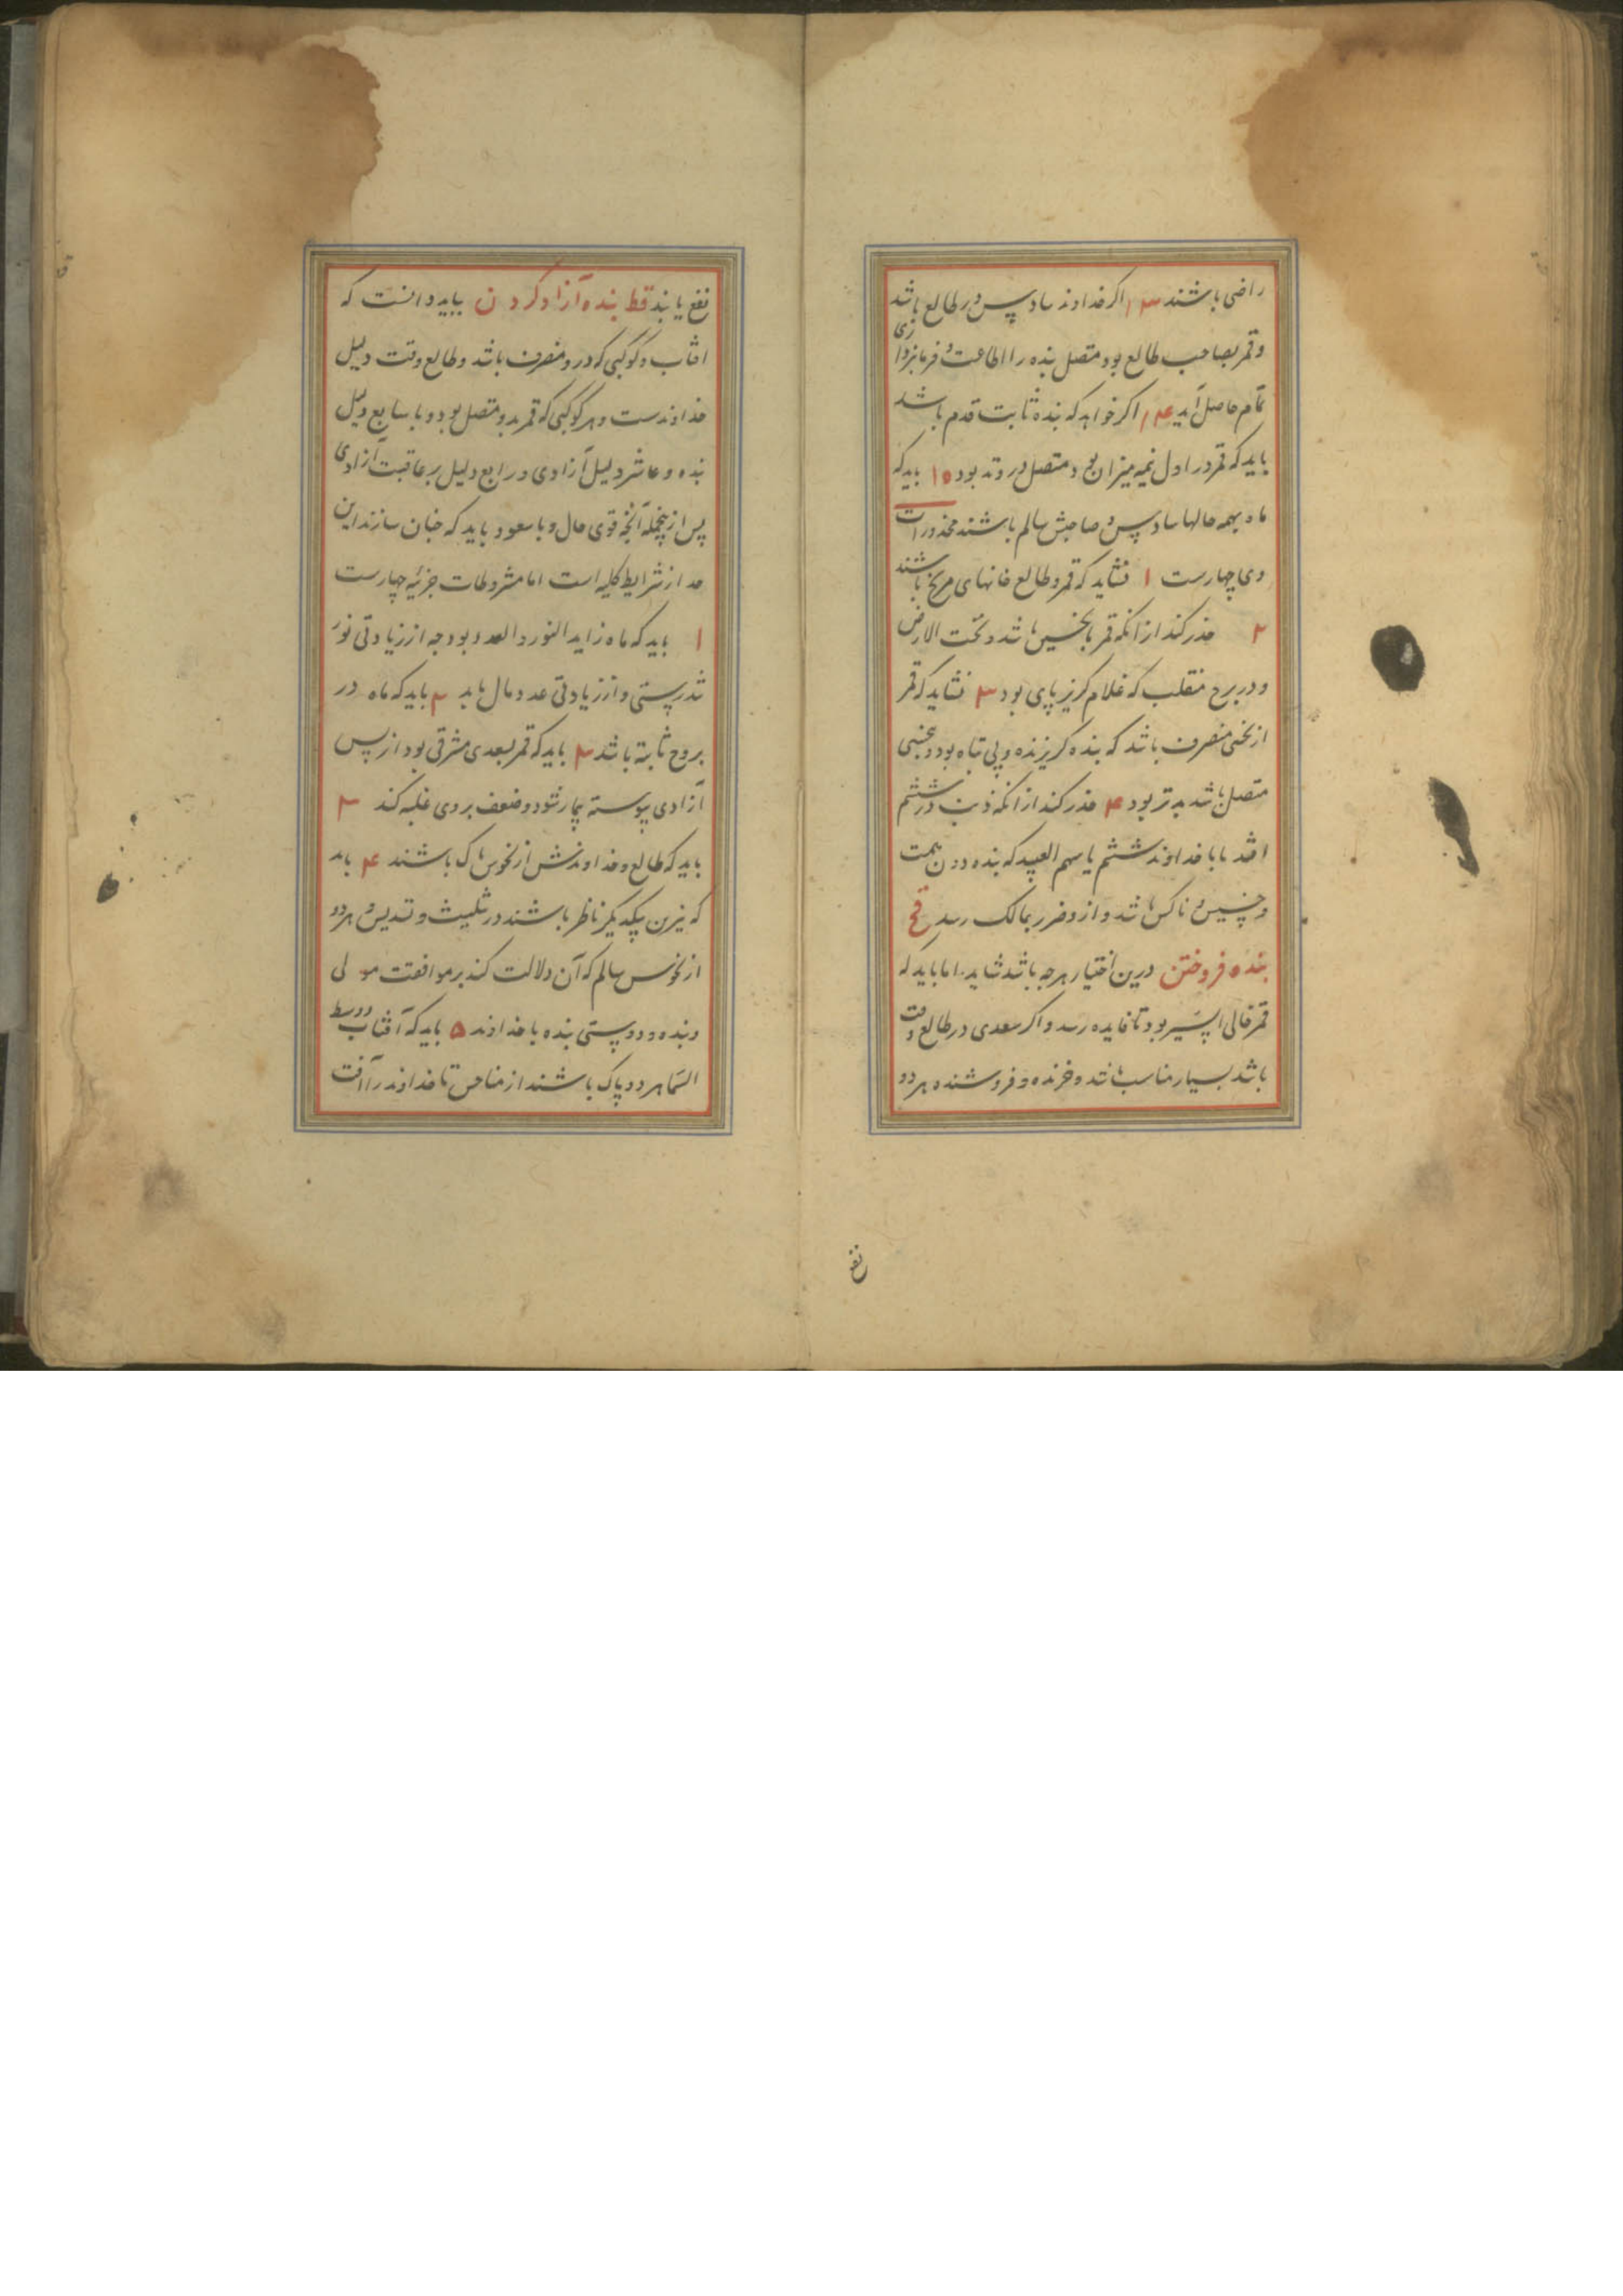 راضی باشند ۱۳ اکر خداوند سادس در طالع باشد
و قمر بصاحب طالع بود متصل بنده را اطاعت و فرمانبرداری
تمام حاصل آید ۱۴ اکر خواهد که بنده ثابت قدم باشد
باید که قمر در اول نیمه میزان بود و متصل در وتد بود ۱۵ باید که
ماه بهمه حالها سادس و صاحبش سالم باشند محذورات
وی چهارست ۱ نشاید که قمر و طالع خانهای مریخ باشند
۲ حذر کند از انکه قمر باشد و تحت الارض
و در برج منقلب که غلام کریز پای بود ۳ نشاید که قمر
از نحسی منصرف باشد که بنده کریزنده و پی تباه بود و بنحسی
متصل باشد بدتر بود ۴ حذر کند از انکه ذنب در ششم
افتد یا با خداوند ششم یا سهم العبید که بنده دون همت
و خسیس و ناکس باشد و ازو ضرر بمالک رسد قح
بنده فروختن درین اختیار هرجه باشد شاید اما باید که
قمر خالی السیر بود تا فایده رسد و اکر سعدی در طالع وقت
باشد بسیار مناسب باشد و خرنده و فروشنده هر دو
نفع
نفع یابند قط بنده آزاد کردن بباید دانست که
افتاب و کوکبی که درو منصرف باشد و طالع وقت دلیل
خداوندست و هر کوکبی که قمر بدو متصل بود و با سابع دلیل
بنده و عاشر دلیل آزادی و رابع دلیل بر عاقبت آزادی
پس ازینجمله آنجه قوی حال و با سعود باید که جنان سازند این
حد از شرایط کلیه است اما مشروطات جزئیه چهارست
۱ باید که ماه زاید النور و العدد بود جه از زیادتی نور
تندرستی و از زیادتی عدد مال یابد ۲ باید که ماه در
بروج ثابته باشد ۳ باید که قمر بسعدی مشرقی بود از پس
آزادی پیوسته بیمار شود و ضعف بر وی غلبه کند ۳
باید که طالع و خداوندش از نحوس پاک باشند ۴ باید
که نیرین بیکدیکر ناظر باشند در تثلیث و تسدیس و هر دو
از نحوس سالم که آن دلالت کند بر موافقت مولی
و بنده و دوستی بنده با خداوند ۵ باید که آفتاب و وسط
السما هر دو پاک باشند از مناحس تا خداوند را آفت